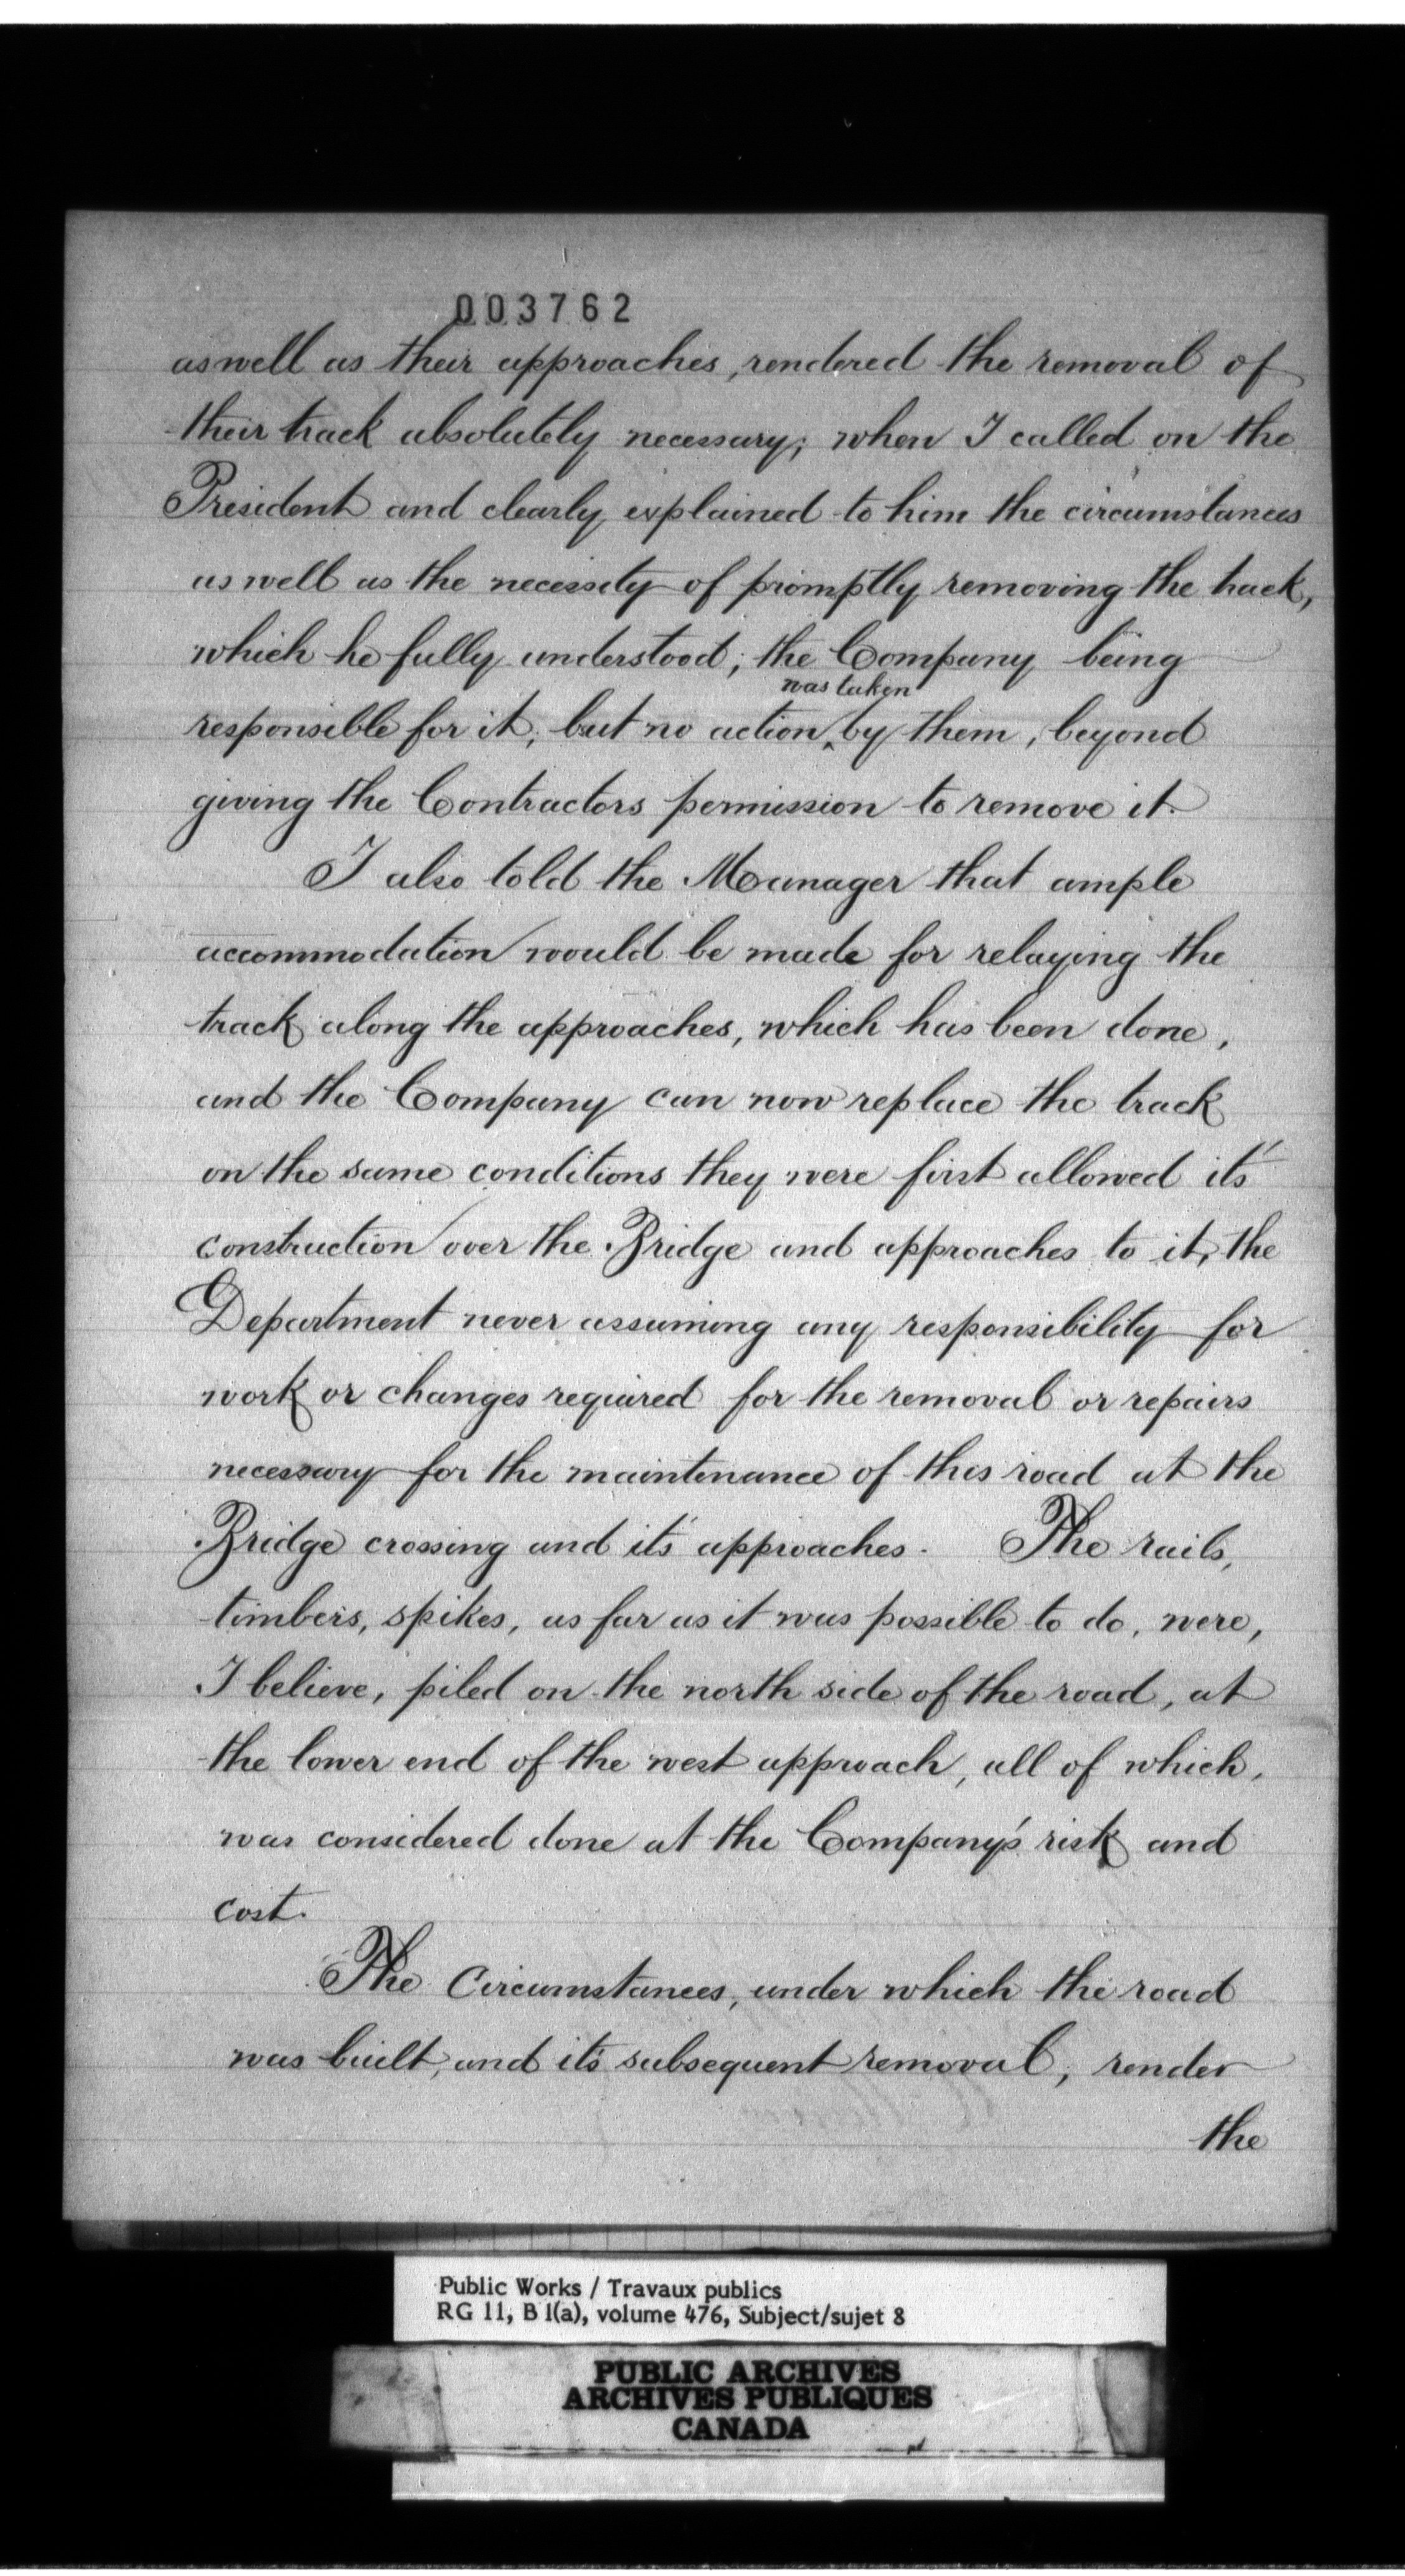 003762
as well as their approaches, rendered the removal of
their track absolutely necessary; when I called on the
President and clearly explained to him the circumstances
as well as the necessity of promptly removing the track,
which he fully understood; the Company being
was taken
responsible for it; but no action ‸ by them, beyond
giving the Contractors permission to remove it.
I also told the Manager that ample
accommodation would be made for relaying the
track along the approaches, which has been done,
and the Company can now replace the track
on the same conditions they were first allowed it's
construction over the Bridge and approaches to it, the
Department never assuming any responsibility for
work or changes required for the removal or repairs
necessary for the maintenance of this road at the
Bridge crossing and it's approaches. The rails,
timbers, spikes, as far as it was possible to do, were,
I believe, piled on the north side of the road, at
the lower end of the west approach, all of which,
was considered done at the Company's risk and
cost.
The Circumstances, under which the road
was built, and it's subsequent removal, render
the
Public Works / Travaux publics
RG 11, B 1(a), volume 476, Subject/sujet 8
PUBLIC ARCHIVES
ARCHIVES PUBLIQUES
CANADA